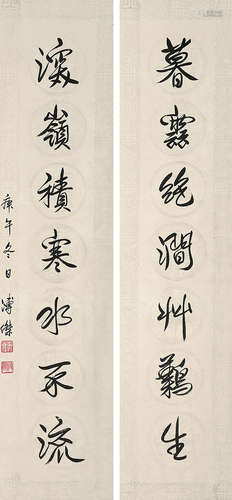 暮絕澗艸難生
深嶺積寒水不流
庚午冬日溥傑